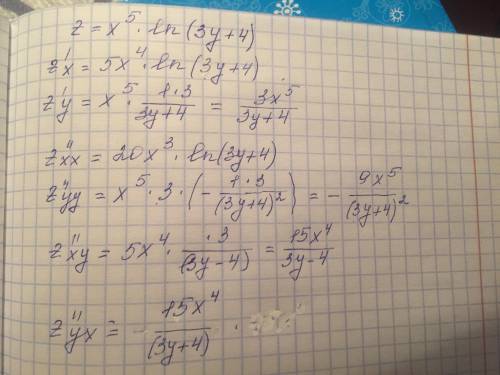 z = x⁵ · ln(3y+4)
z'x = 5x⁴ · ln(3y+4)
z'y = x⁵ · (1·3)/(3y+4) = 3x⁵/(3y+4)
z''xx = 20x³ · ln(3y+4)
z''yy = x⁵ · 3 · (−(1·3)/(3y+4)²) = −9x⁵/(3y+4)²
z''xy = 5x⁴ · (·3)/(3y−4) = 15x⁴/(3y−4)
z''yx = 15x⁴/(3y+4) ·